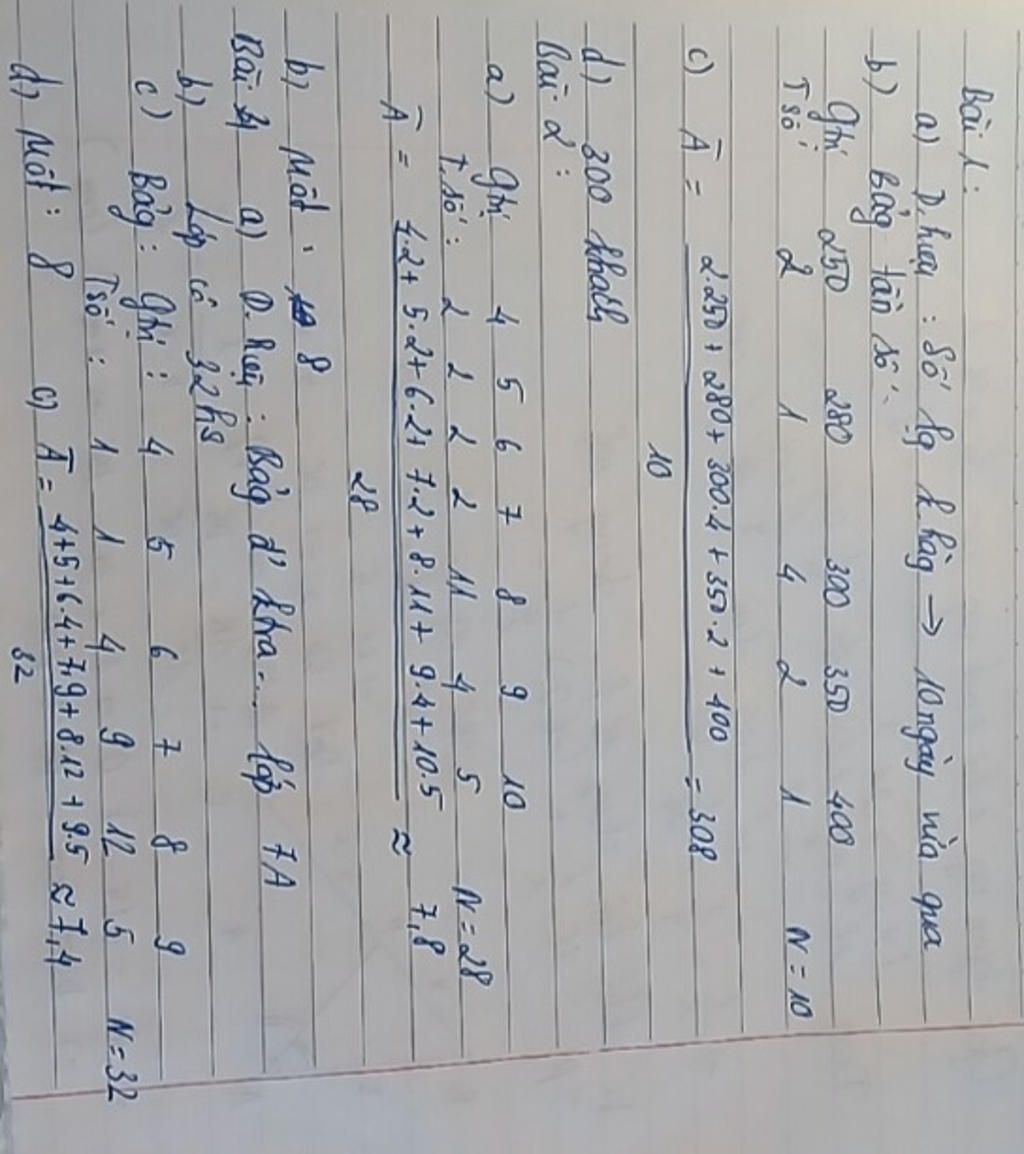 Bài 1:
a) D. hiệu : Số lg k.hàg → 10 ngày vừa qua
b) Bảg tần số:
Gtrị 250 280 300 350 400
Tsố: 2 1 4 2 1 N = 10
c) A̅ = 2.250 + 280 + 300.4 + 350.2 + 400 = 308
10
d) 300 khách
Bài 2 :
a) Gtrị 4 5 6 7 8 9 10
T.số : 2 2 2 2 11 4 5 N = 28
A̅ = 4.2 + 5.2 + 6.2 + 7.2 + 8.11 + 9.4 + 10.5 ≈ 7,8
28
b) Mốt : 8
Bài 3 a) D. hiệu : Bảg đ' ktra.... lớp 7A
b) Lớp có 32 hs
c) Bảg : Gtrị : 4 5 6 7 8 9
Tsố : 1 1 4 9 12 5 N = 32
d) Mốt : 8 c) A̅ = 4+5+6.4+7.9+8.12+9.5 ≈ 7,4
32